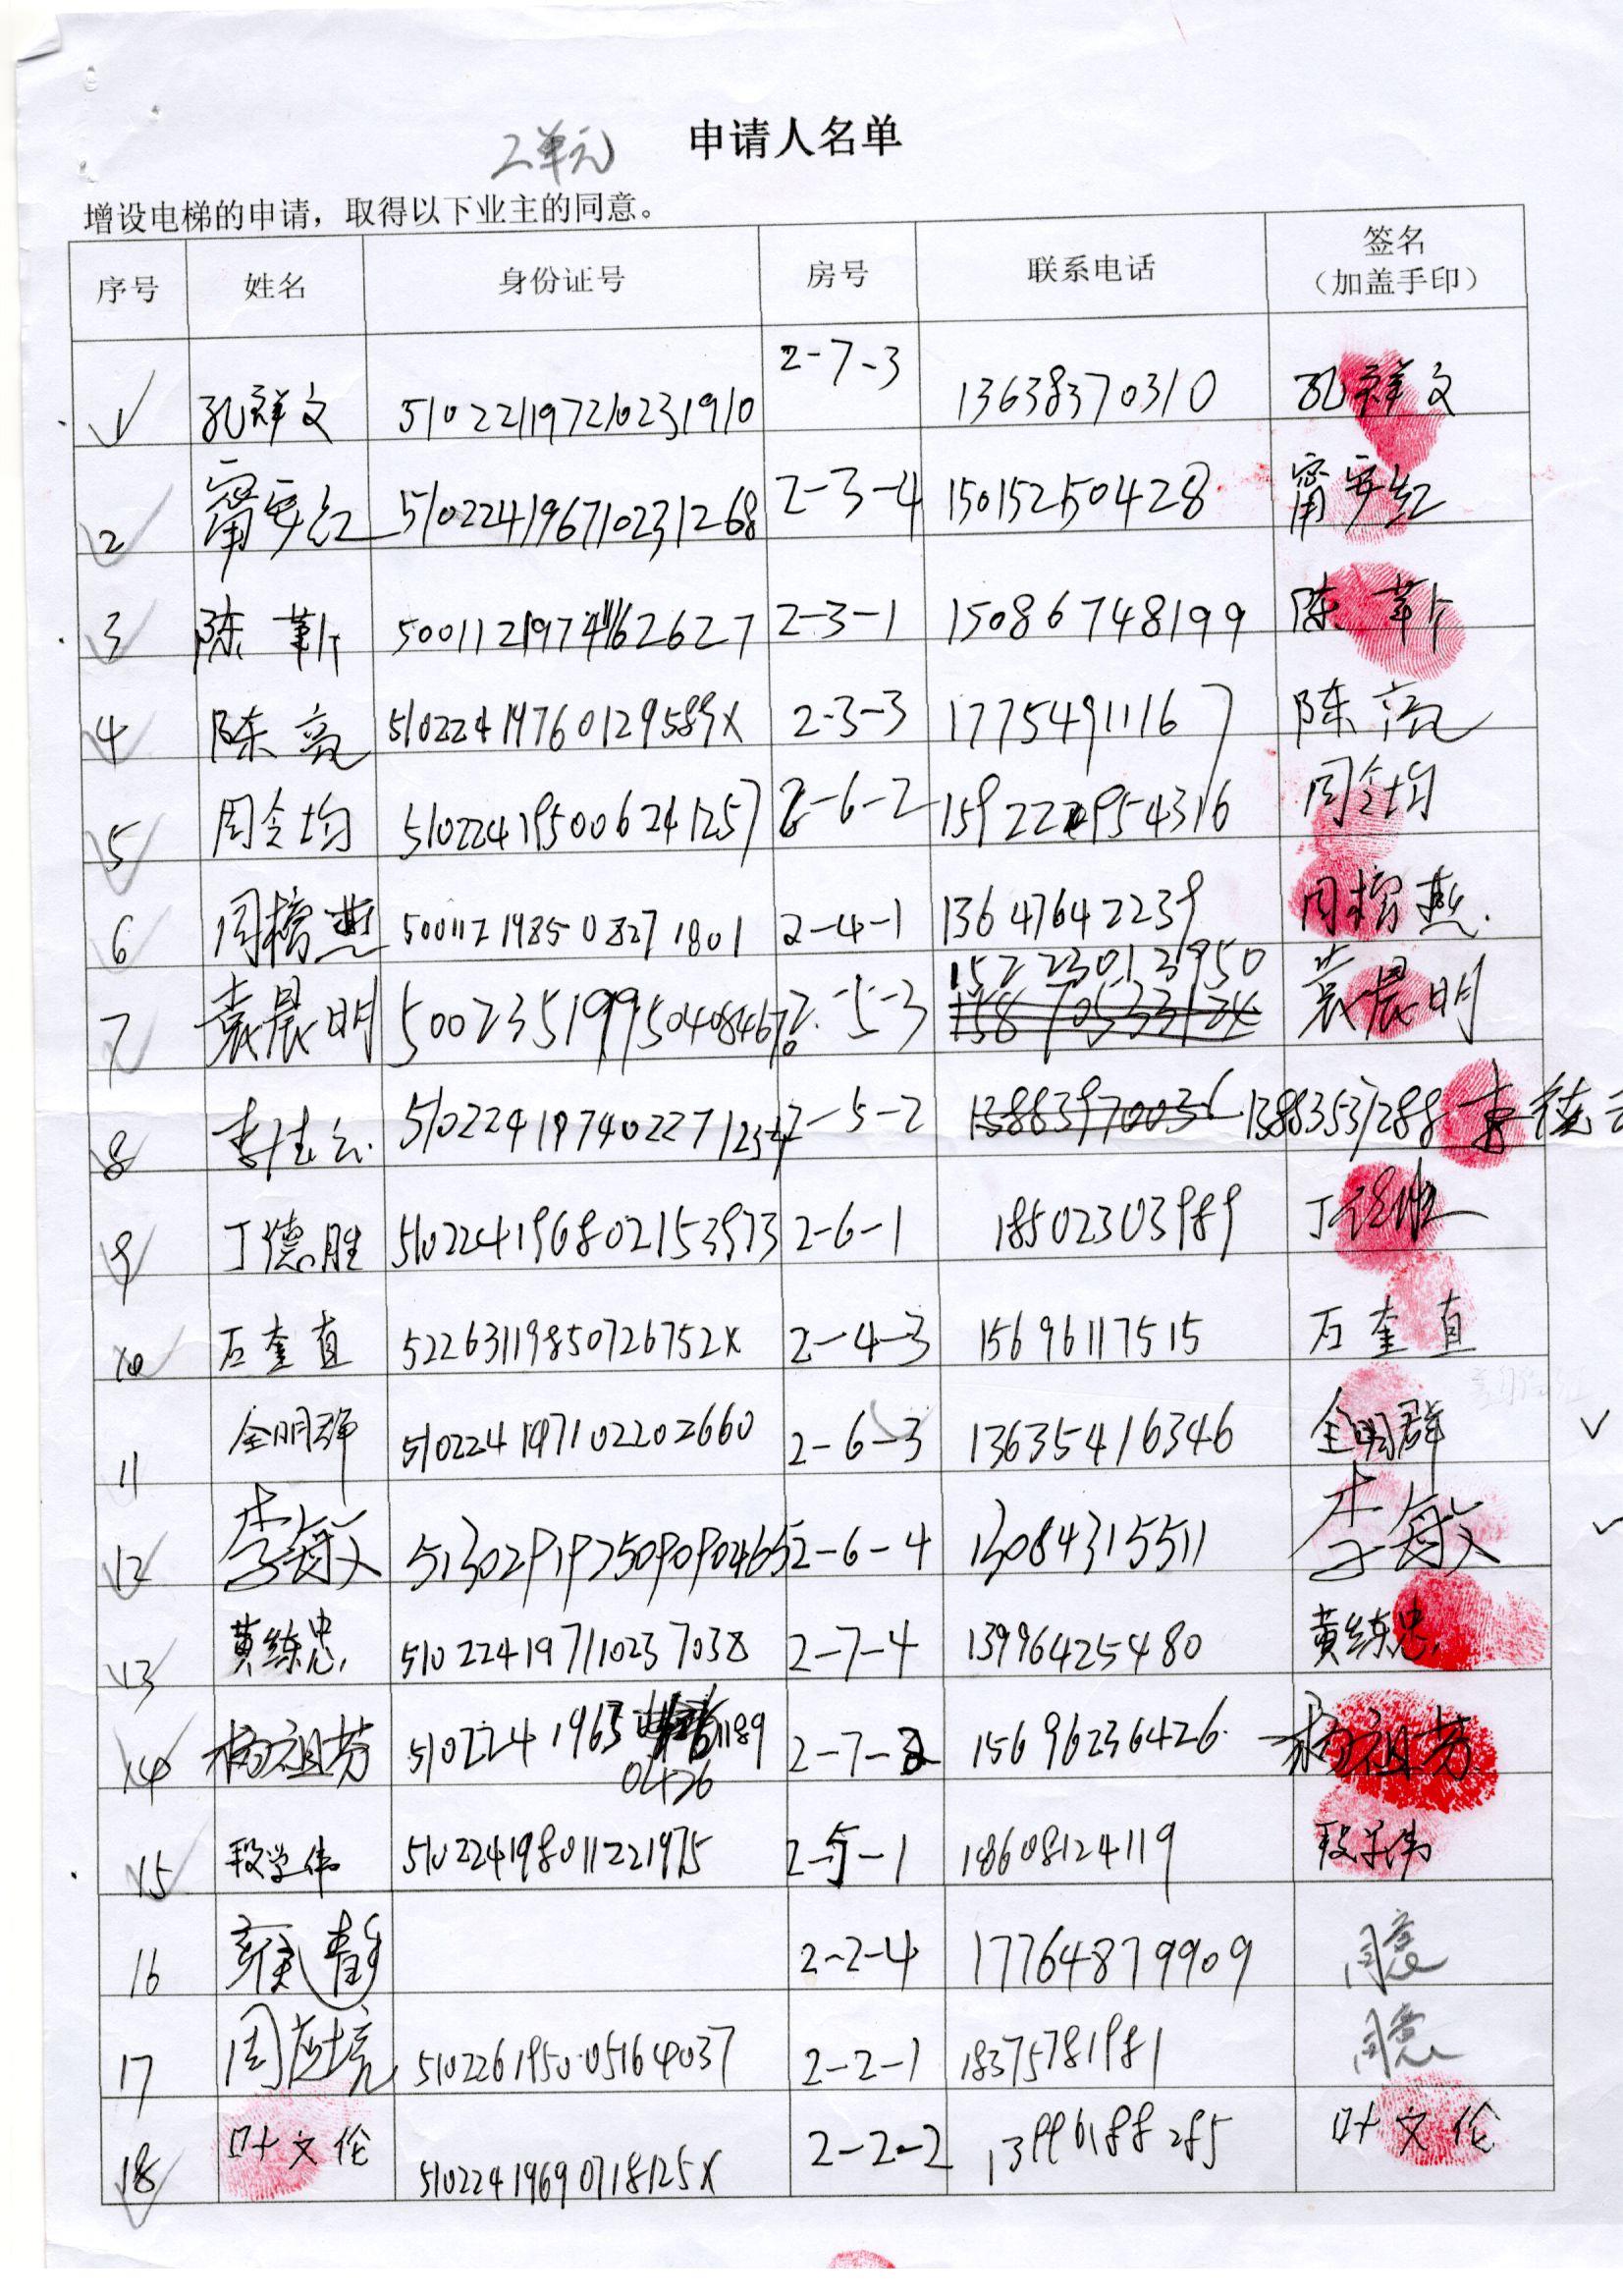 2单元 申请人名单
增设电梯的申请，取得以下业主的同意。
序号 姓名 身份证号 房号 联系电话 签名（加盖手印）
1 孔祥文 510221197210231910 2-7-3 13638370310 孔祥文
2 甯安红 510224196710231268 2-3-4 15015250428 甯安红
3 陈 2-3-1 15086748199 陈
4 陈亮 51022419760129589X 2-3-3 17754911167 陈亮
5 周令均 510224195006241257 2-6-2 周令均
6 周榕燕 500112198508271801 2-4-1 13647642239 周榕燕
7 袁晨明 2-5-3 15223013950 袁晨明
8 李德云 510224197402271234 2-5-2 13883970036 13883531288 李德云
9 丁德胜 510224196802153973 2-6-1 18502303989 丁德胜
10 石奎直 52263119850726752X 2-4-3 15696117515 石奎直
11 全明群 510224197102202660 2-6-3 13635416346 全明群
12 李敏 513029197509090465 2-6-4 13084315511 李敏
13 黄练忠 510224197110237038 2-7-4 13996425480 黄练忠
14 杨祖芬 510224 1963 1189 2-7-2 15696236426 杨祖芬
0426
15 段学伟 510224198011221975 2-5-1 18608124119 段学伟
16 静 2-2-4 17764879909 同意
17 周 510226195005164037 2-2-1 18375781981 同意
18 叶文伦 51022419690718125X 2-2-2 13996188285 叶文伦